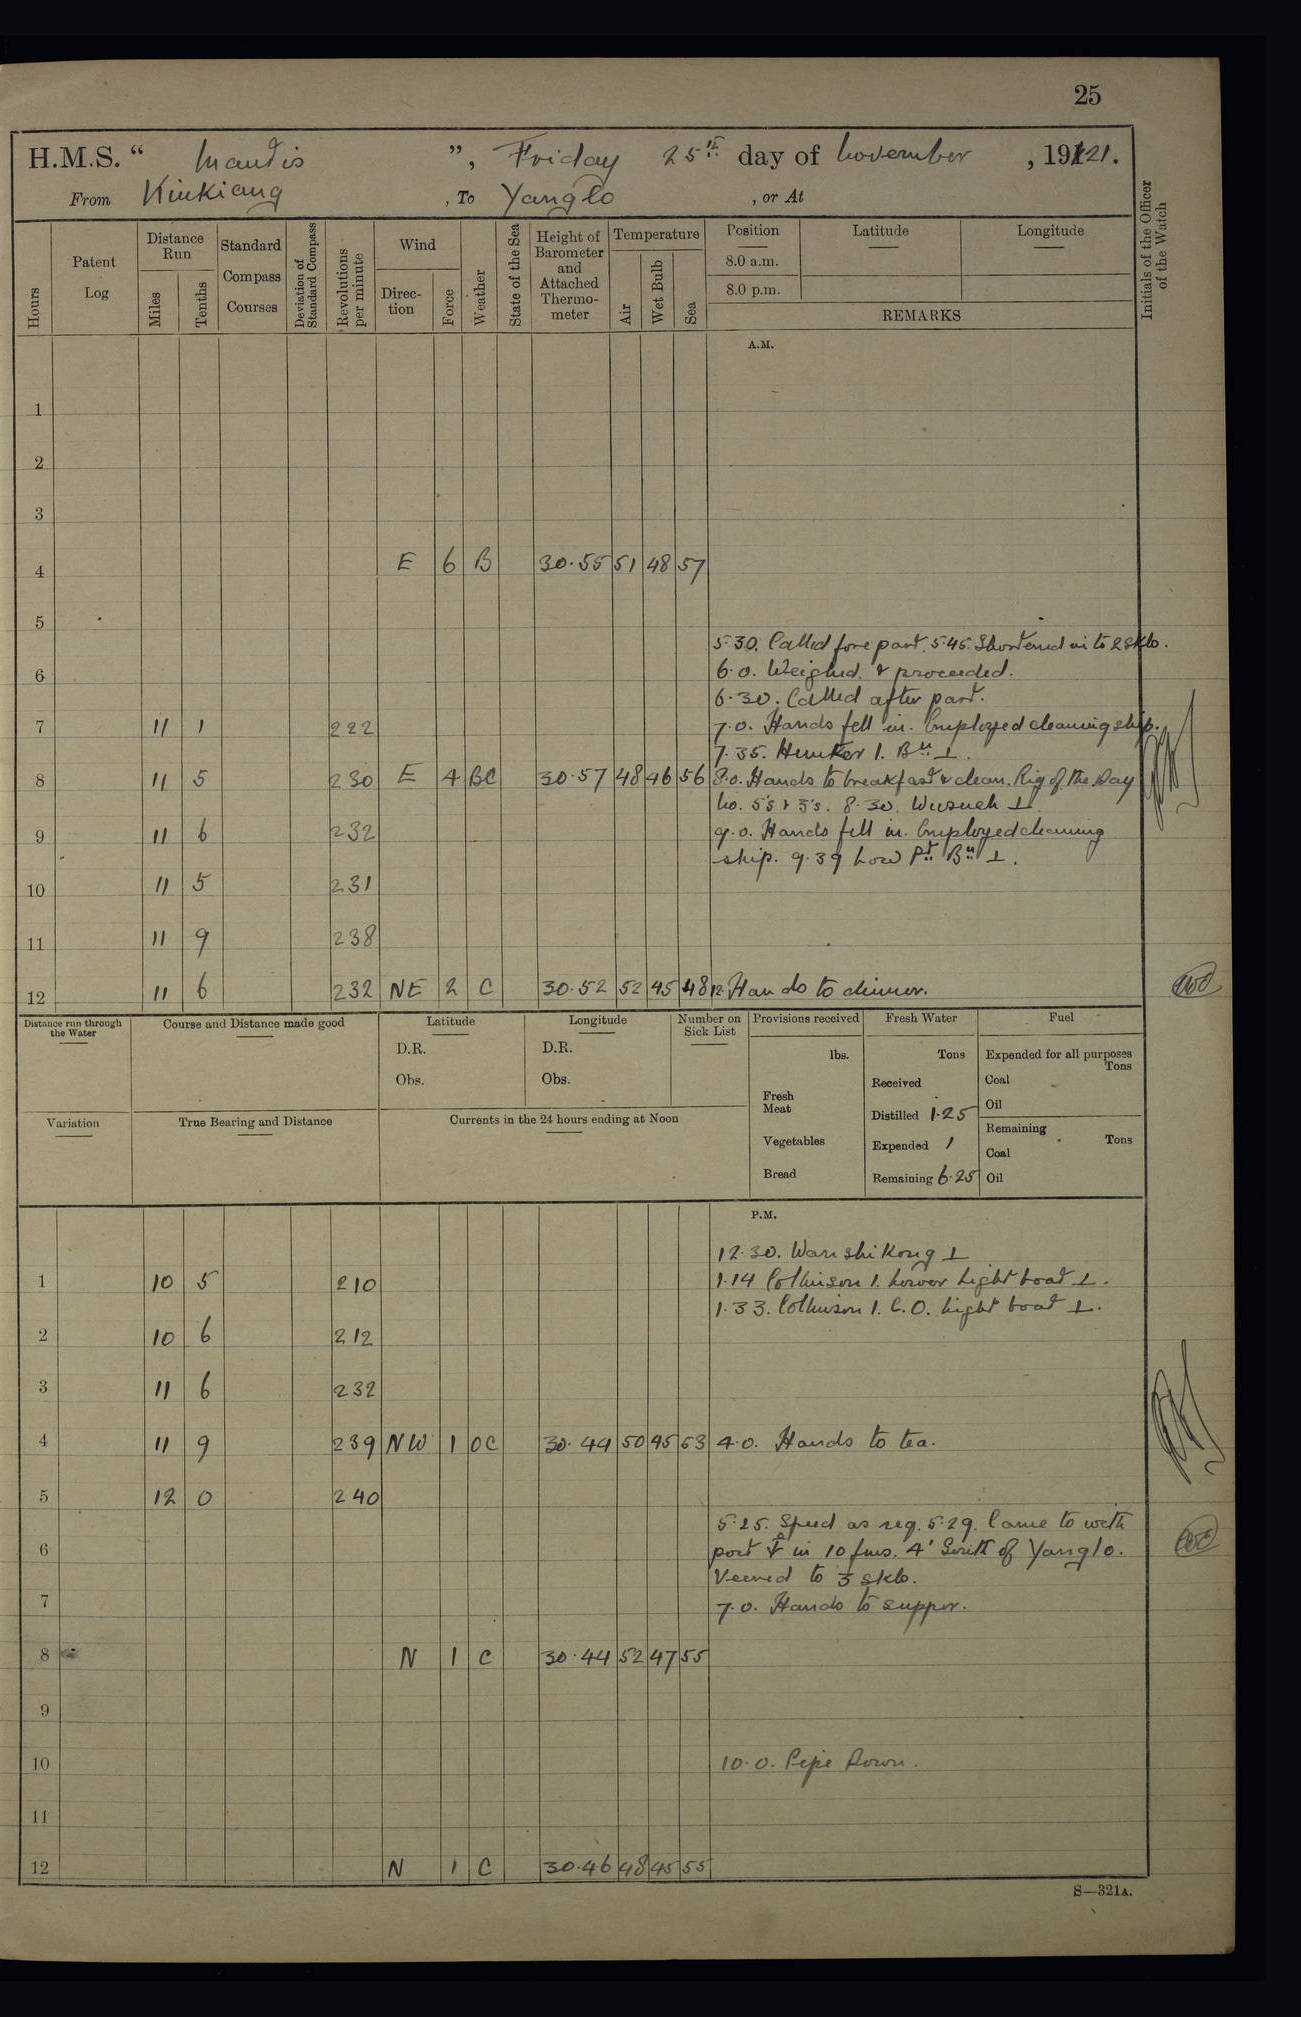 25
H.M.S. “ Mantis ”, Friday 25th day of November, 1921.
From Kiukiang, To Yanglo, or At
Hours
Patent Log
Distance Run
Miles
Tenths
Standard Compass Courses
Deviation of Standard Compass
Revolutions per minute
Wind
Direction
Force
Weather
State of the Sea
Height of Barometer and Attached Thermometer
Temperature
Air
Wet Bulb
Sea
Position
8.0 a.m.
8.0 p.m.
Latitude
Longitude
REMARKS
Initials of the Officer of the Watch
A.M.
1
2
3
4 E 6 B 30.55 51 48 57
5
5.30. Called fore part. 5.45. Shortened in to 2 skls.
6 6.0. Weighed & proceeded.
6.30. Called after part.
7 11 1 222 7.0. Hands fell in. Employed cleaning ship.
7.35. Hunter I. Bn ⊥.
8 11 5 230 E 4 BC 30.57 48 46 56 8.0. Hands to breakfast & clean. Rig of the Day
No. 5's & 3's. 8.30. Wusueh ⊥
9 11 6 232 9.0. Hands fell in. Employed cleaning
ship. 9.39 Low Pt. Bn ⊥.
10 11 5 231
11 11 9 238
12 11 6 232 NE 2 C 30.52 52 45 48 12. Hands to dinner.
Distance run through the Water
Course and Distance made good
Latitude
D.R.
Obs.
Longitude
D.R.
Obs.
Number on Sick List
Provisions received
lbs.
Fresh Meat
Vegetables
Bread
Fresh Water
Tons
Received
Distilled 1.25
Expended 1
Remaining 6.25
Fuel
Expended for all purposes
Tons
Coal
Oil
Remaining
Tons
Coal
Oil
Variation
True Bearing and Distance
Currents in the 24 hours ending at Noon
P.M.
12.30. Wanshikong ⊥
1 10 5 210 1.14 Collinson I. Lower Light boat ⊥.
1.33. Collinson I. C.O. Light boat ⊥.
2 10 6 212
3 11 6 232
4 11 9 239 NW 1 OC 30.44 50 45 53 4.0. Hands to tea.
5 12 0 240
5.25. Speed as req. 5.29. Came to with
6 port ⚓ in 10 fms. 4' South of Yanglo.
Veered to 3 skls.
7 7.0. Hands to supper.
8 N 1 C 30.44 52 47 55
9
10 10.0. Pipe Down.
11
12 N 1 C 30.46 48 45 55
S—321A.